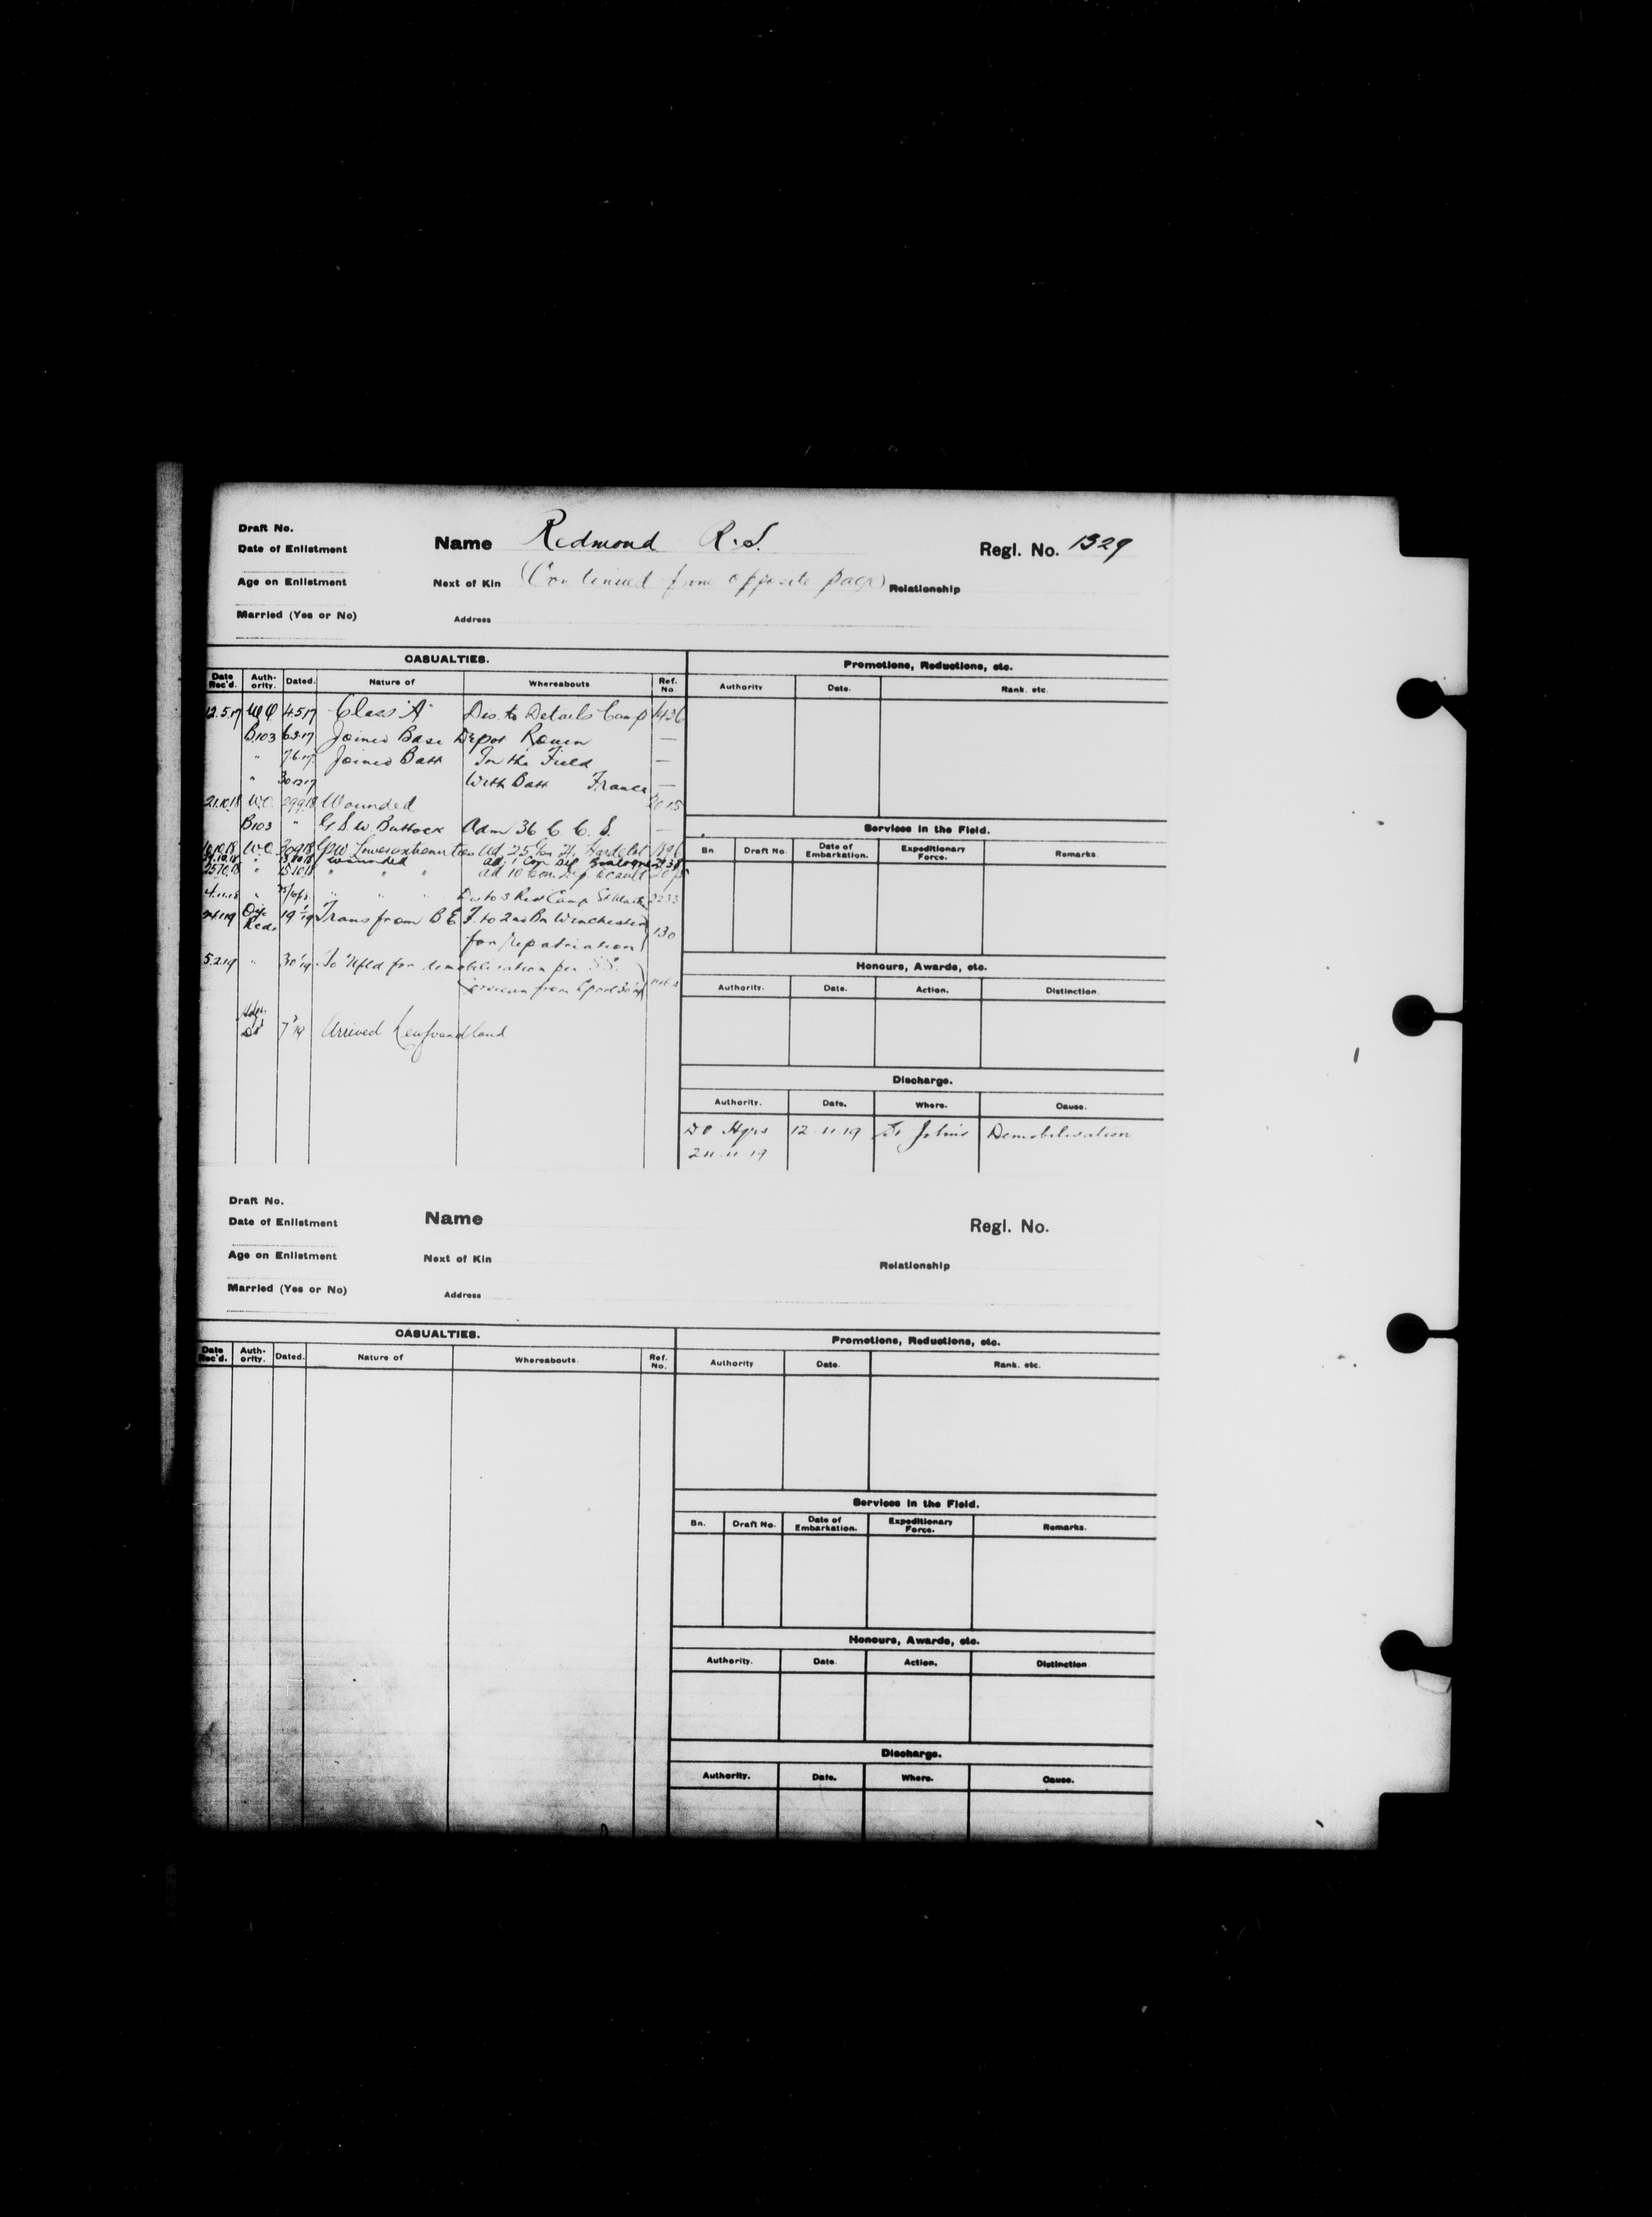 Draft No.
Date of Enlistment
Name Redmond R.S.
Regl. No. 1329
Age on Enlistment
Next of Kin (Continued from opposite page) Relationship
Married (Yes or No)
Address
CASUALTIES.
Date Rec'd. Auth-ority. Dated. Nature of Whereabouts Ref. No.
12.5.17 WO 4.5.17 Class "A" Dis. to Details Camp 1436
B103 6.5.17 Joined Base Depot Rouen —
" 7.6.17 Joined Batt In the Field —
" 30.12.17 With Batt France —
21.10.18 W.O. 29.9.18 Wounded
B103 " G.S.W. Buttock Adm 36 C.C.S. —
W.O. 30.9.18 GSW Lower extremities Ad. 25 Gen H. Hardelot
" wounded ad. 1 Con Dep Boulogne
25.10.18 " 15.10.18 " " " ad 10 Con. Dep. Ecault
4.11.18 " " " " Dis to 3 Rest Camp 2233
24.1.19 Rcds 19 1/19 Trans from B.E.F. to 2nd Bn Winchester
for repatriation 130
5.2.19 " 30 1/19 To Nfld for demobilisation per S.S.
Corsican from
7 2/19 Arrived Newfoundland
Promotions, Reductions, etc.
Authority Date. Rank. etc.
Services in the Field.
Bn. Draft No. Date of Embarkation. Expeditionary Force. Remarks.
Honours, Awards, etc.
Authority. Date. Action. Distinction.
Discharge.
Authority. Date. Where. Cause.
DO Hqrs 12.11.19 St John's Demobilisation
24.11.19
Draft No.
Date of Enlistment
Name
Regl. No.
Age on Enlistment
Next of Kin
Relationship
Married (Yes or No)
Address
CASUALTIES.
Date Rec'd. Auth-ority. Dated. Nature of Whereabouts. Ref. No.
Promotions, Reductions, etc.
Authority Date. Rank. etc.
Services in the Field.
Bn. Draft No. Date of Embarkation. Expeditionary Force. Remarks.
Honours, Awards, etc.
Authority. Date. Action. Distinction
Discharge.
Authority. Date. Where. Cause.